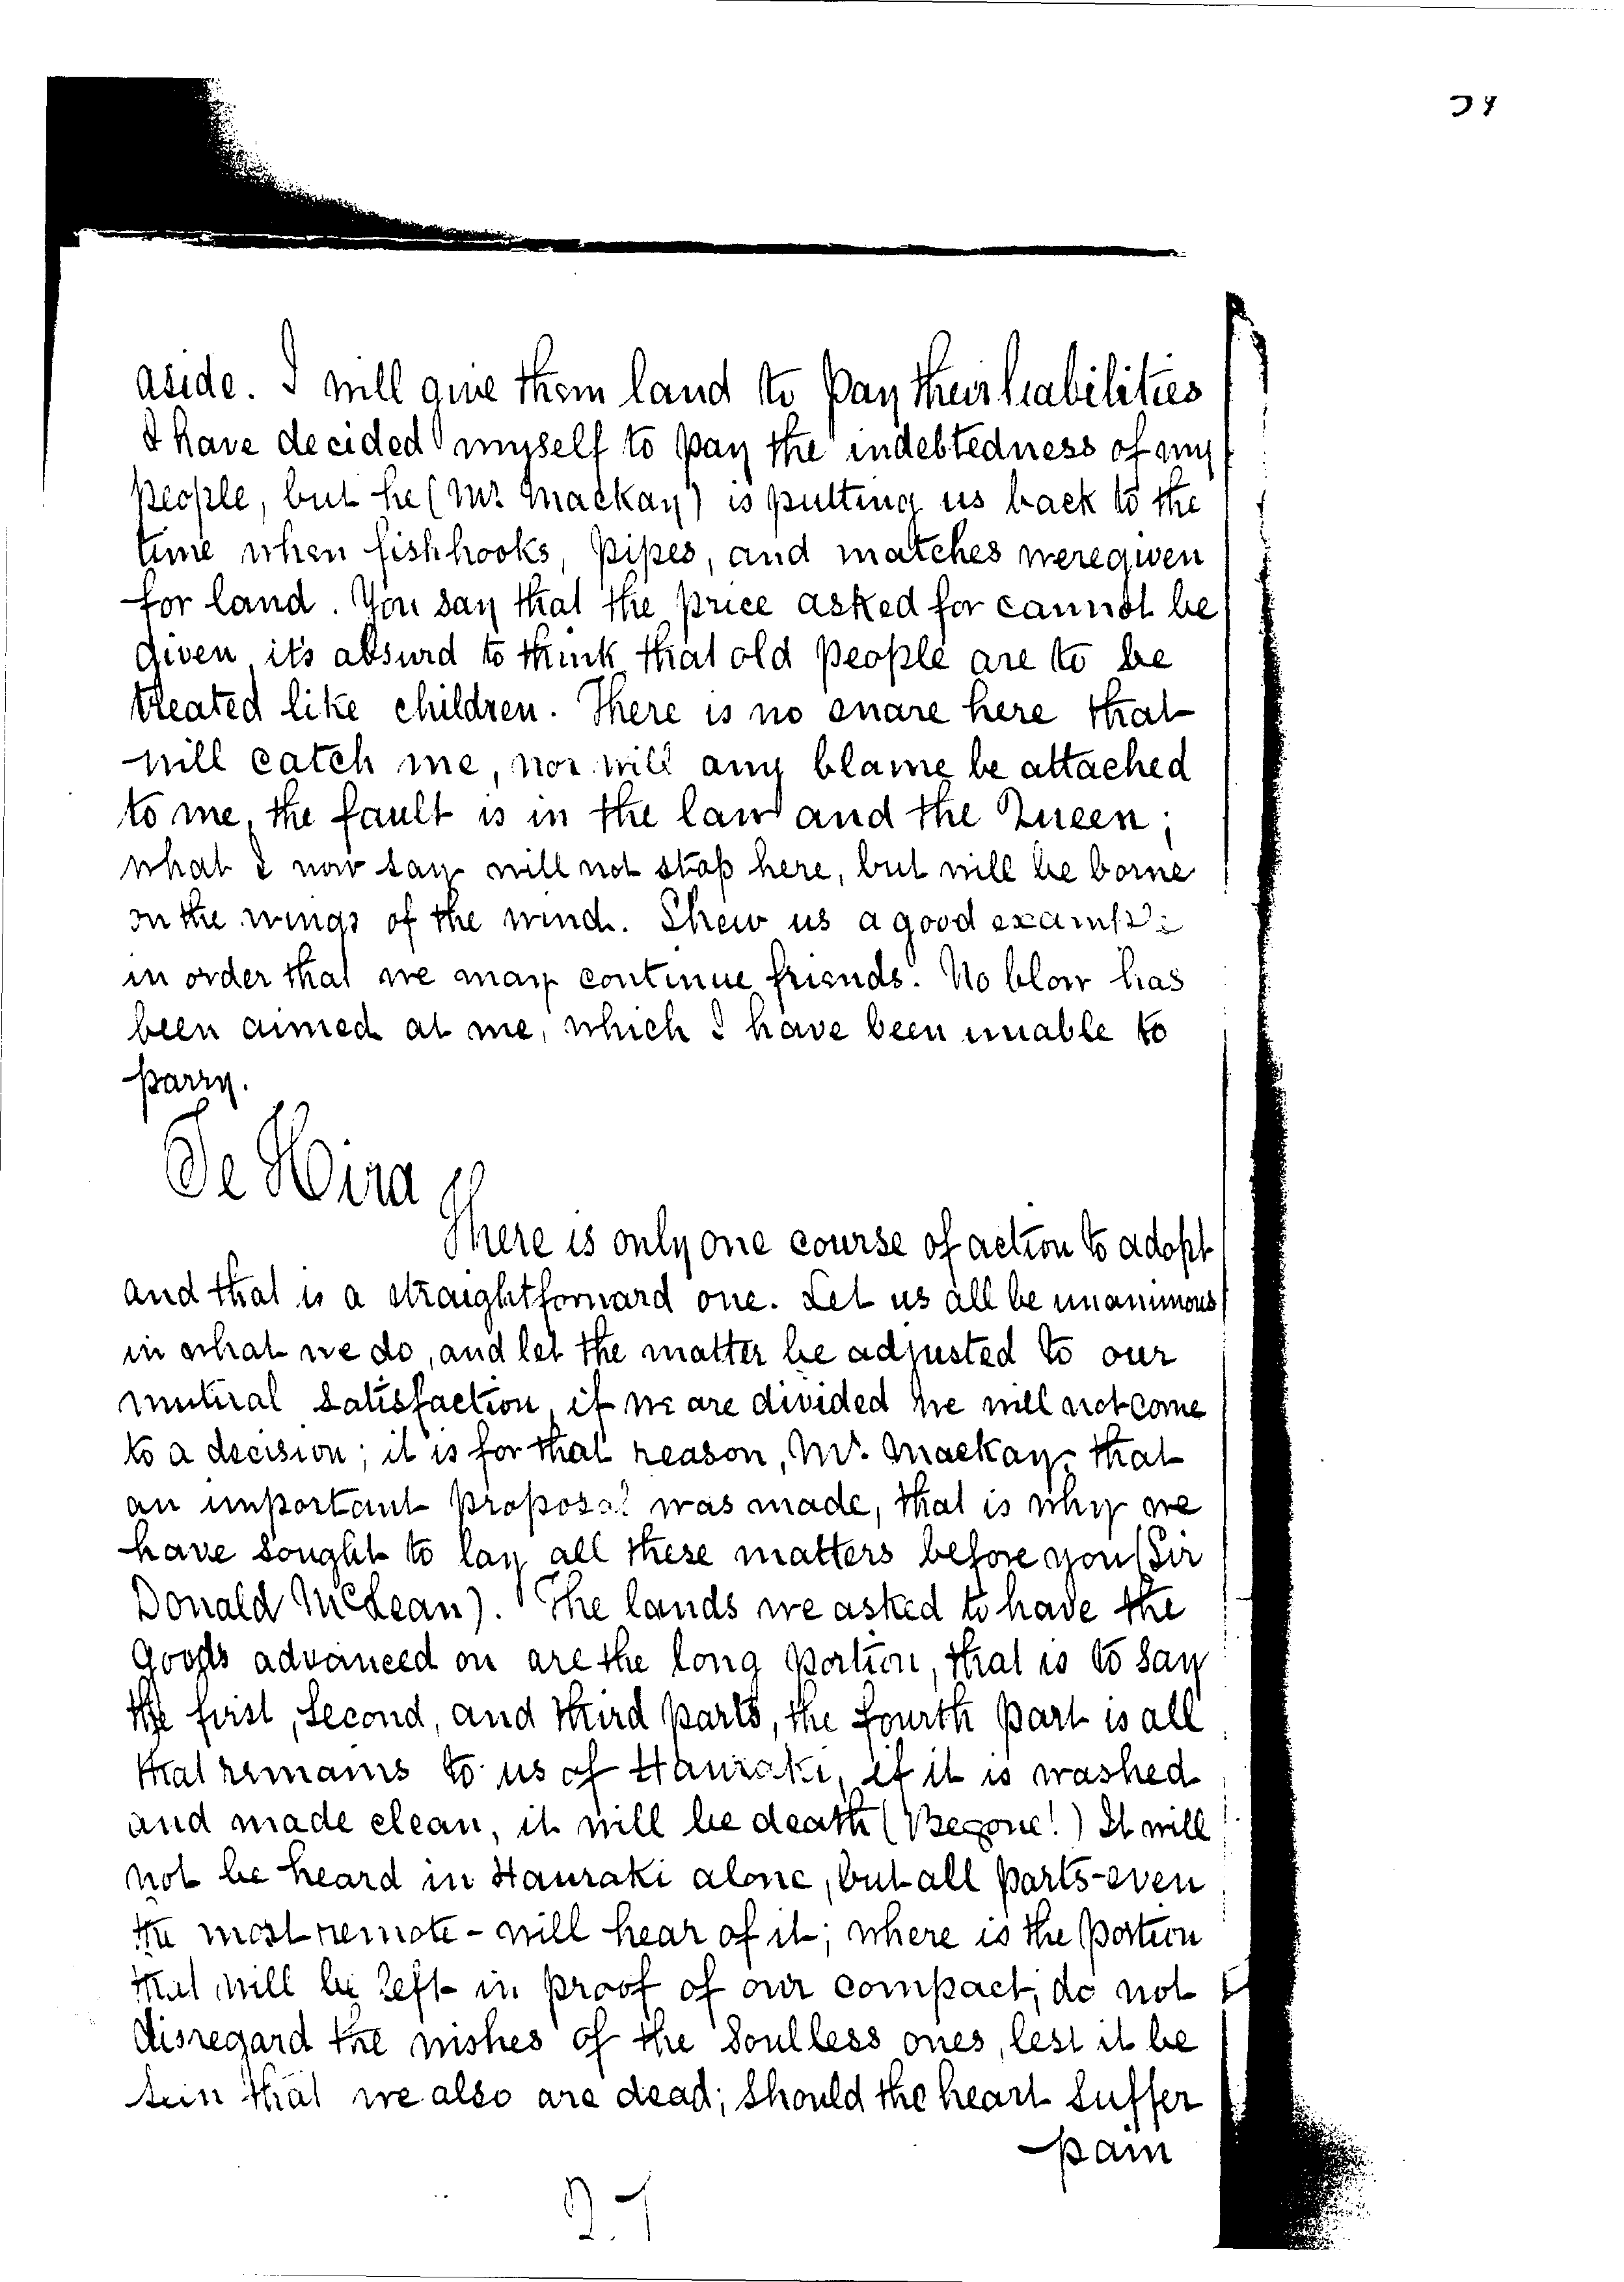 aside. I will give them land to pay their liabilities
I have decided myself to pay the indebtedness of my
people, but he (Mr Mackay) is putting us back to the
time when fishhooks, pipes, and matches were given
for land. You say that the price asked for cannot be
given, it's absurd to think that old people are to be
treated like children. There is no snare here that
will catch me, nor will any blame be attached
to me, the fault is in the law and the Queen;
what I now say will not stop here, but will be borne
on the wings of the wind. Shew us a good example
in order that we may continue friends. No blow has
been aimed at me, which I have been unable to
parry.
Te Hira
There is only one course of action to adopt
and that is a straightforward one. Let us all be unanimous
in what we do, and let the matter be adjusted to our
mutual satisfaction, if we are divided we will not come
to a decision; it is for that reason, Mr. Mackay, that
an important proposal was made, that is why we
have sought to lay all these matters before you (Sir
Donald McLean). The lands we asked to have the
goods advanced on are the long portion, that is to say
the first, second, and third parts, the fourth part is all
that remains to us of Hauraki, if it is washed
and made clean, it will be death (Begone!) It will
not be heard in Hauraki alone, but all parts-even
the most remote - will hear of it; where is the portion
that will be left in proof of our compact, do not
disregard the wishes of the soulless ones, lest it be
seen that we also are dead; should the heart suffer
pain